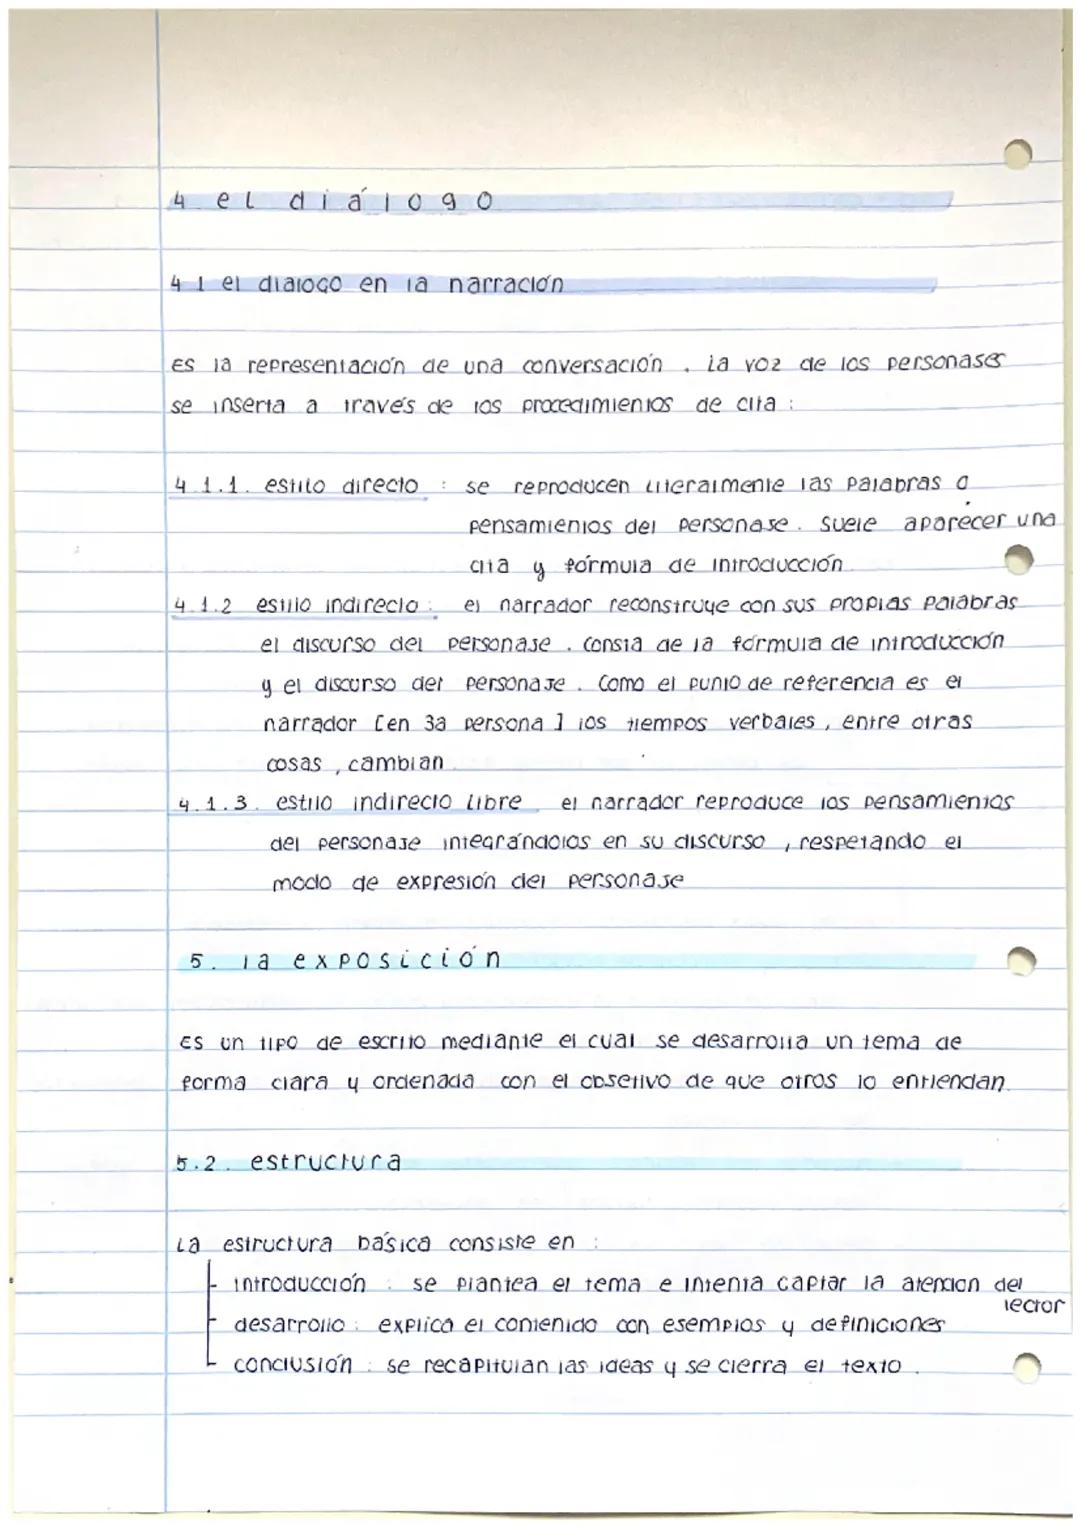 4 el diálogo
4 1 el dialogo en la narración
Es la representación de una conversación . La voz de los personajes
se inserta a través de los procedimientos de cita :
4.1.1. estilo directo : se reproducen literalmente las palabras o
pensamientos del personaje . Suele aparecer una
cita y fórmula de introducción
4.1.2 estilo indirecto : el narrador reconstruye con sus propias palabras
el discurso del personaje . Consta de la fórmula de introducción
y el discurso del personaje . Como el punto de referencia es el
narrador [en 3a persona] los tiempos verbales , entre otras
cosas , cambian .
4.1.3. estilo indirecto libre el narrador reproduce los pensamientos
del personaje integrándolos en su discurso , respetando el
modo de expresión del personaje
5. la exposición
Es un tipo de escrito mediante el cual se desarrolla un tema de
forma clara y ordenada con el objetivo de que otros lo entiendan.
5.2. estructura
La estructura básica consiste en :
- introducción : se plantea el tema e intenta captar la atención del
lector
- desarrollo : explica el contenido con ejemplos y definiciones
- conclusión : se recapitulan las ideas y se cierra el texto .